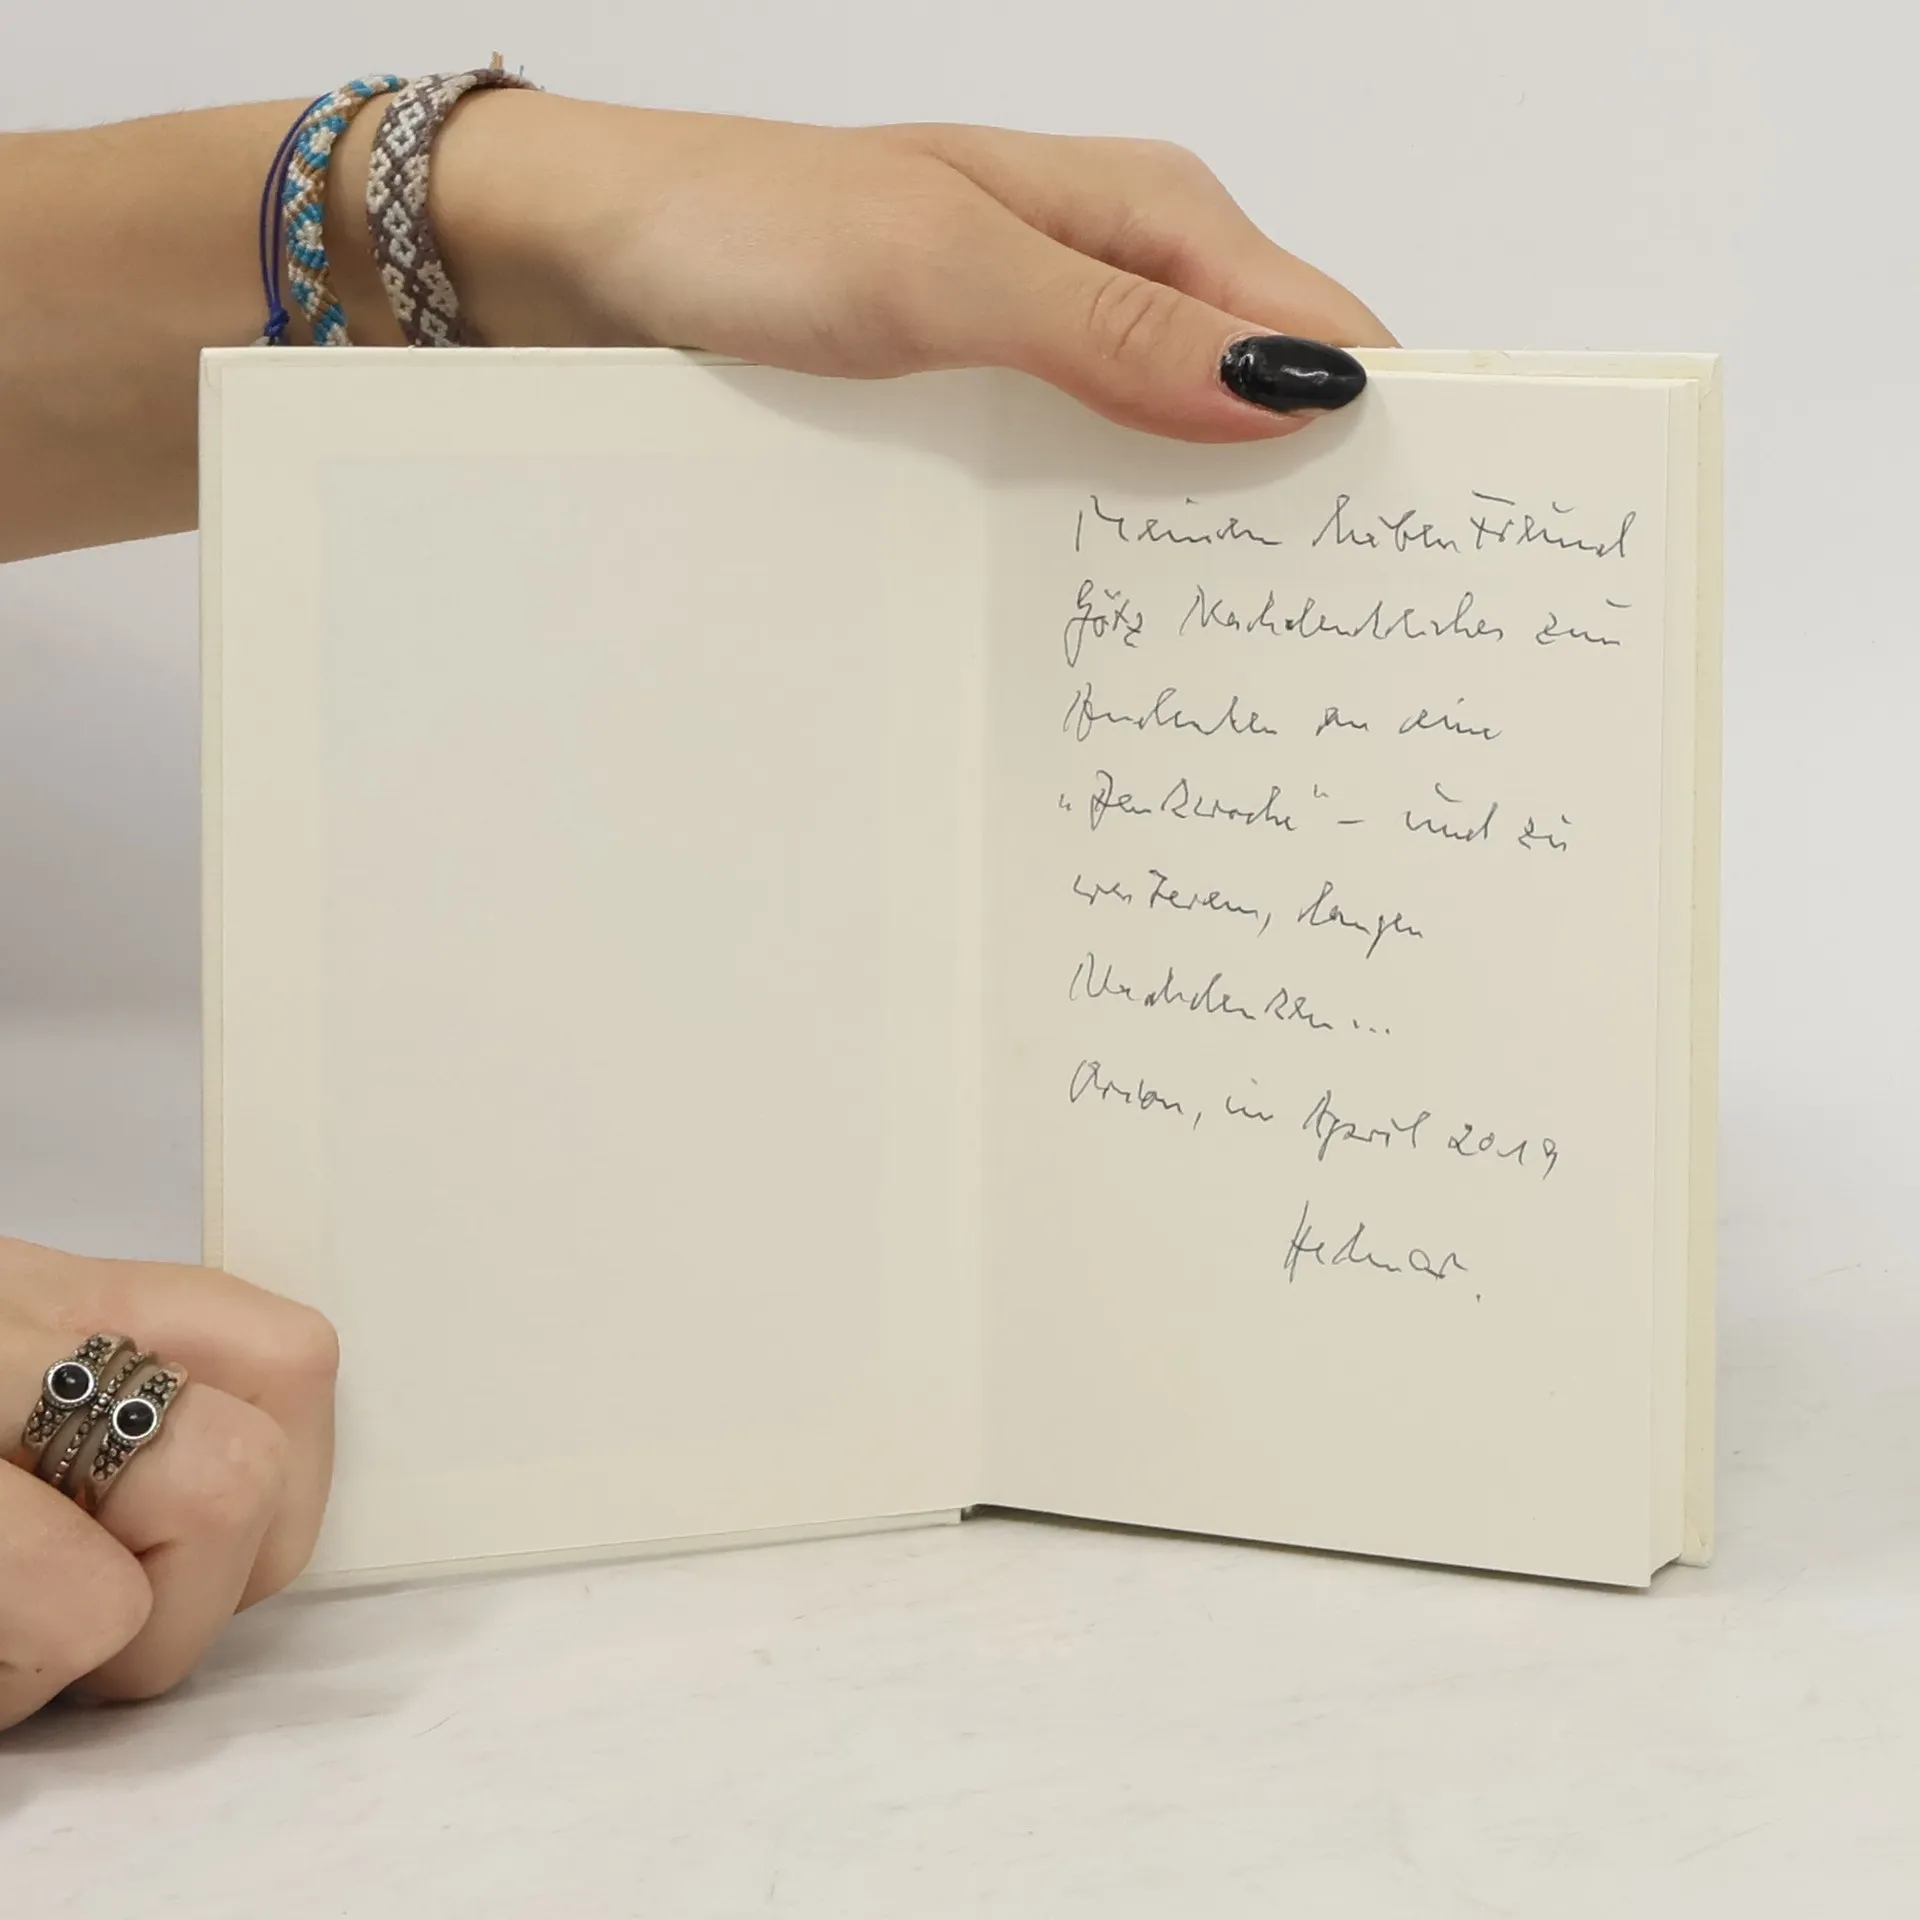 Meinem lieben Freund
Götz Nachdenkliches zum
Andenken an eine
„Denkwoche“ – und zu
weiterem, langen
Nachdenken...
im April 2019